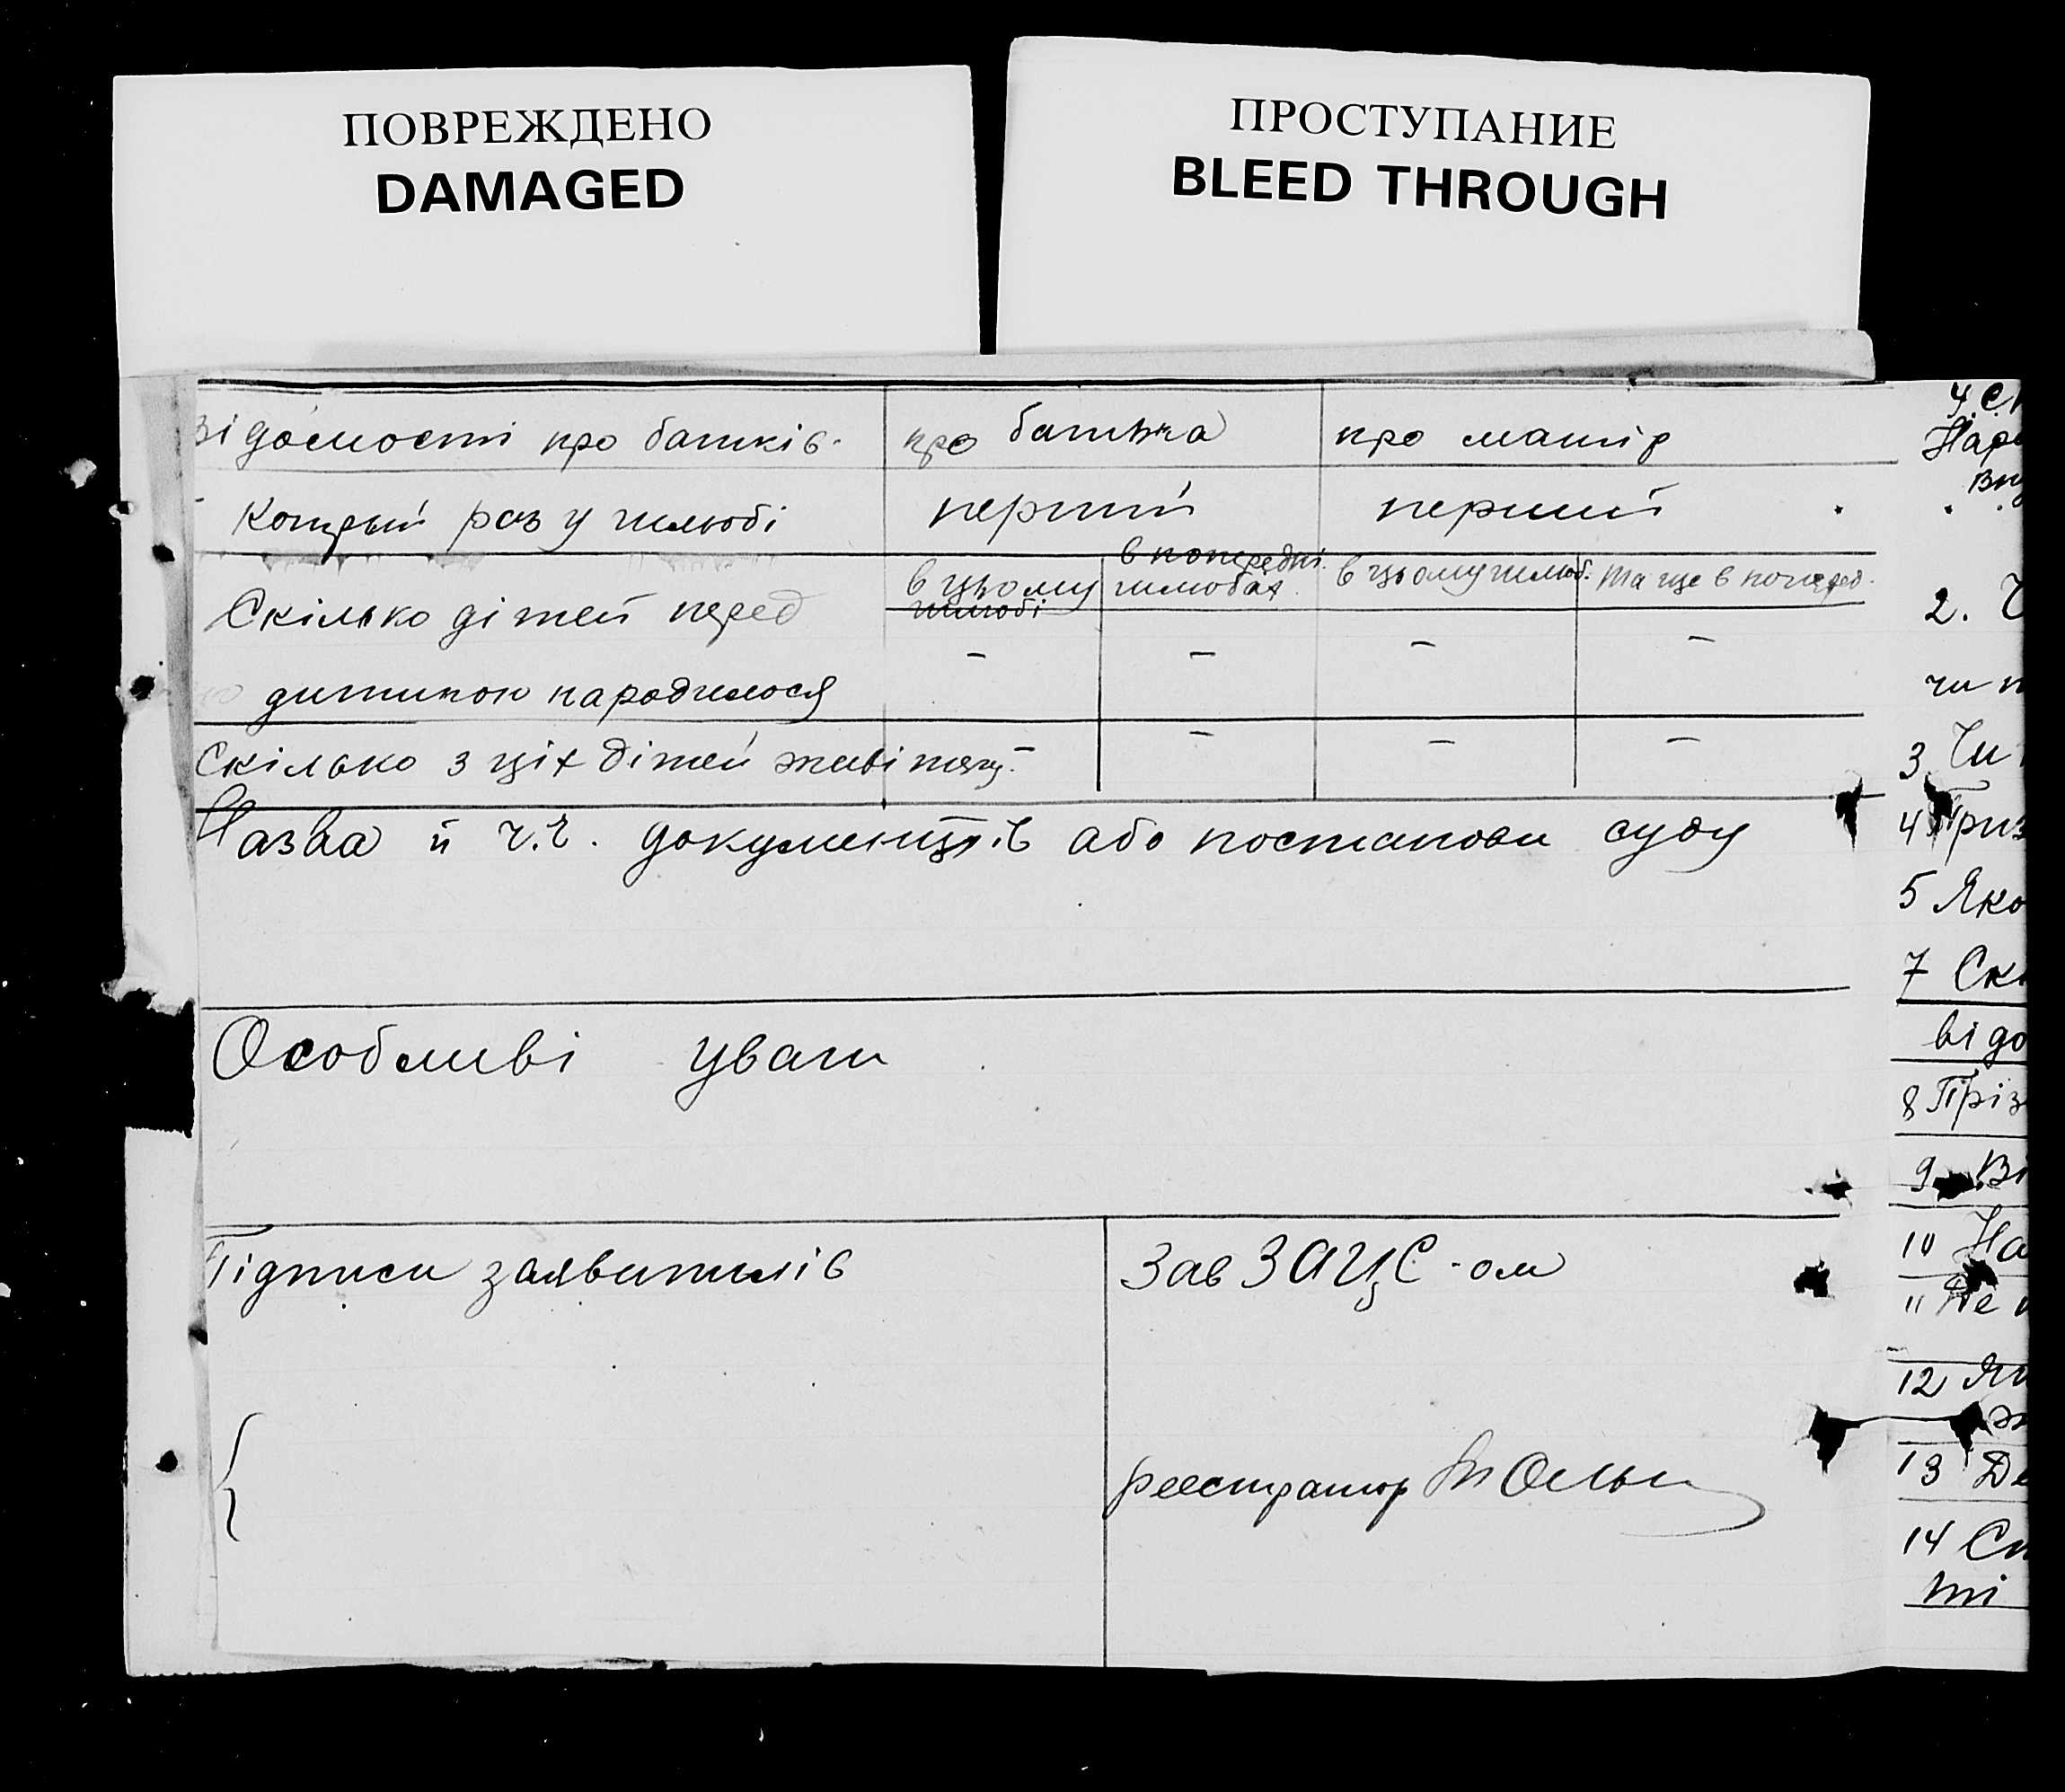 ПОВРЕЖДЕНО
DAMAGED
ПРОСТУПАНИЕ
BLEED THROUGH
відомості про батьків про батька про матір
Котрый раз у шлюбі перший перший
Скілько дітей перед в цьому шлюбі в попередні. шлюбах в цьому шлюб. та ще в поперед.
дитиною народилося – – – –
Скілько з ціх дітей живі – – – –
Назва й ч.ч. документів або постанови суду
Особливі уваги
Підписи заявителів Зав ЗАЦС-ом
реестратор
У.С.
2.
чи
3 Чи
4
5 Яко
7 Скі
відо
8 Пріз
9 Ві
10 На
11 Де
12
13 Де
14
ті